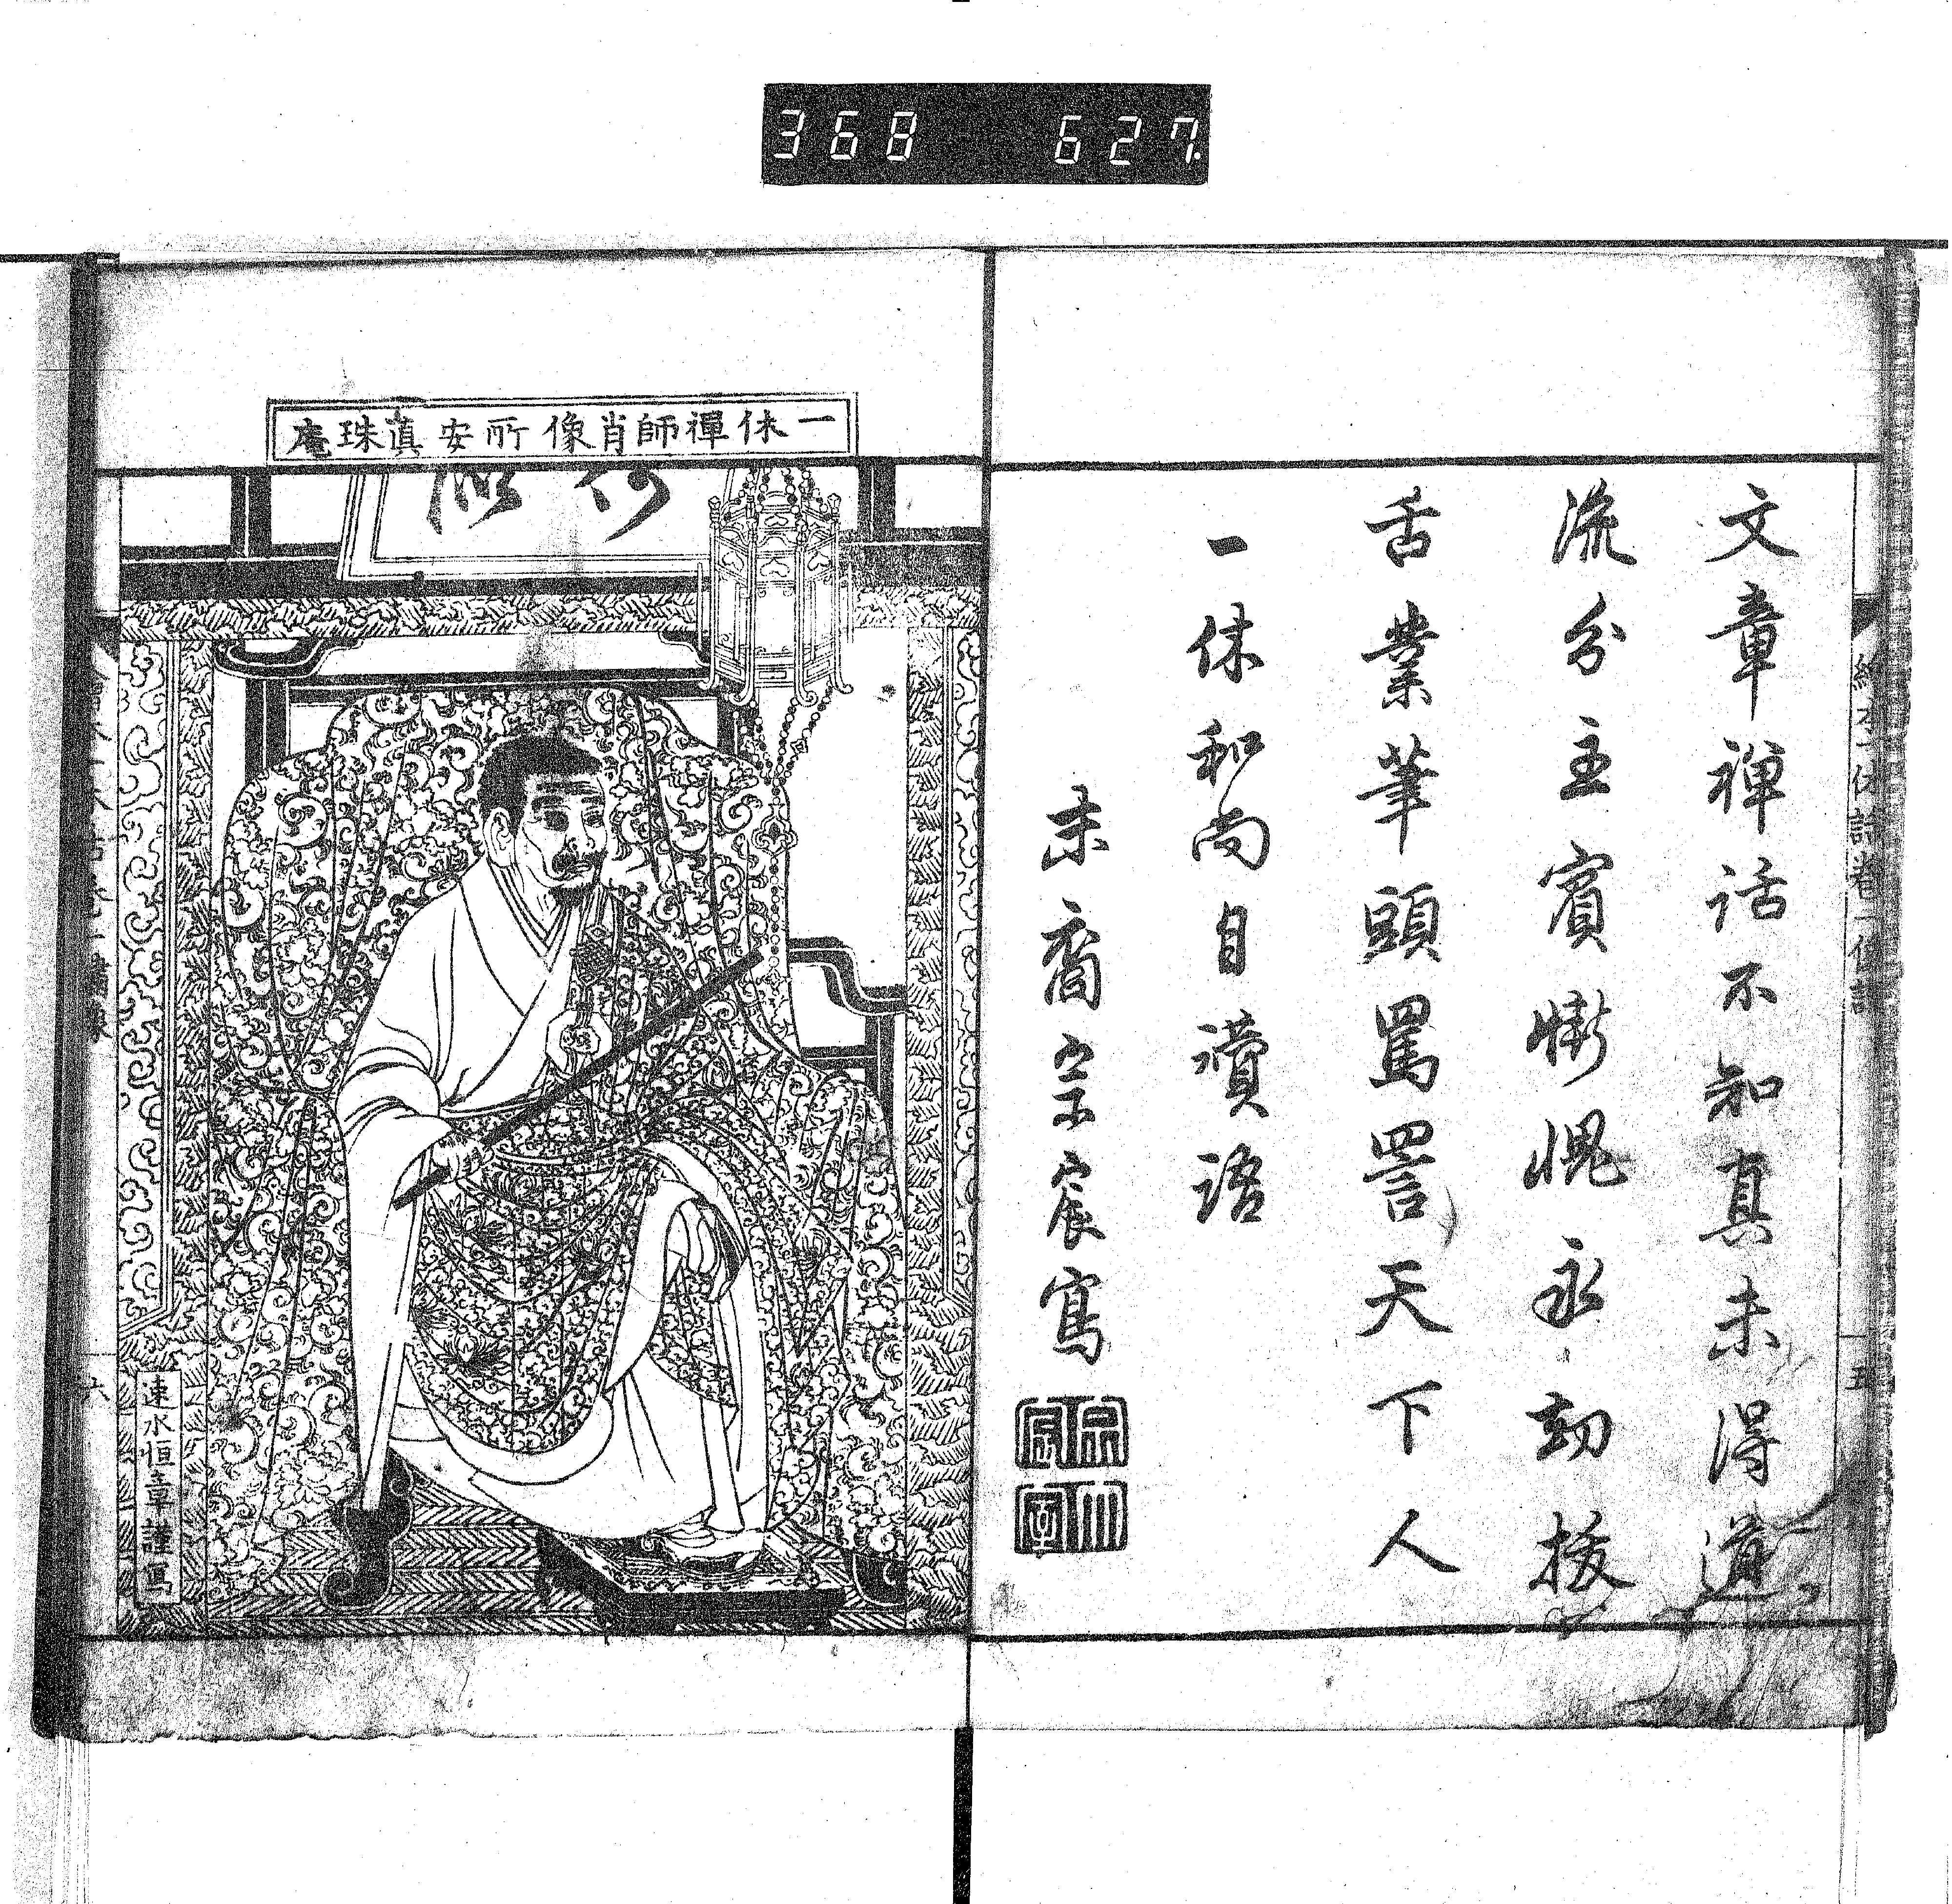 368 627
文章禅話不知真未得道
流分主賓慚愧永劫抜
舌業筆頭罵詈天下人
一休和尚自讃語
末裔宗宸寫
一休禪師肖像所安真珠庵
速水恒章謹寫
五
六